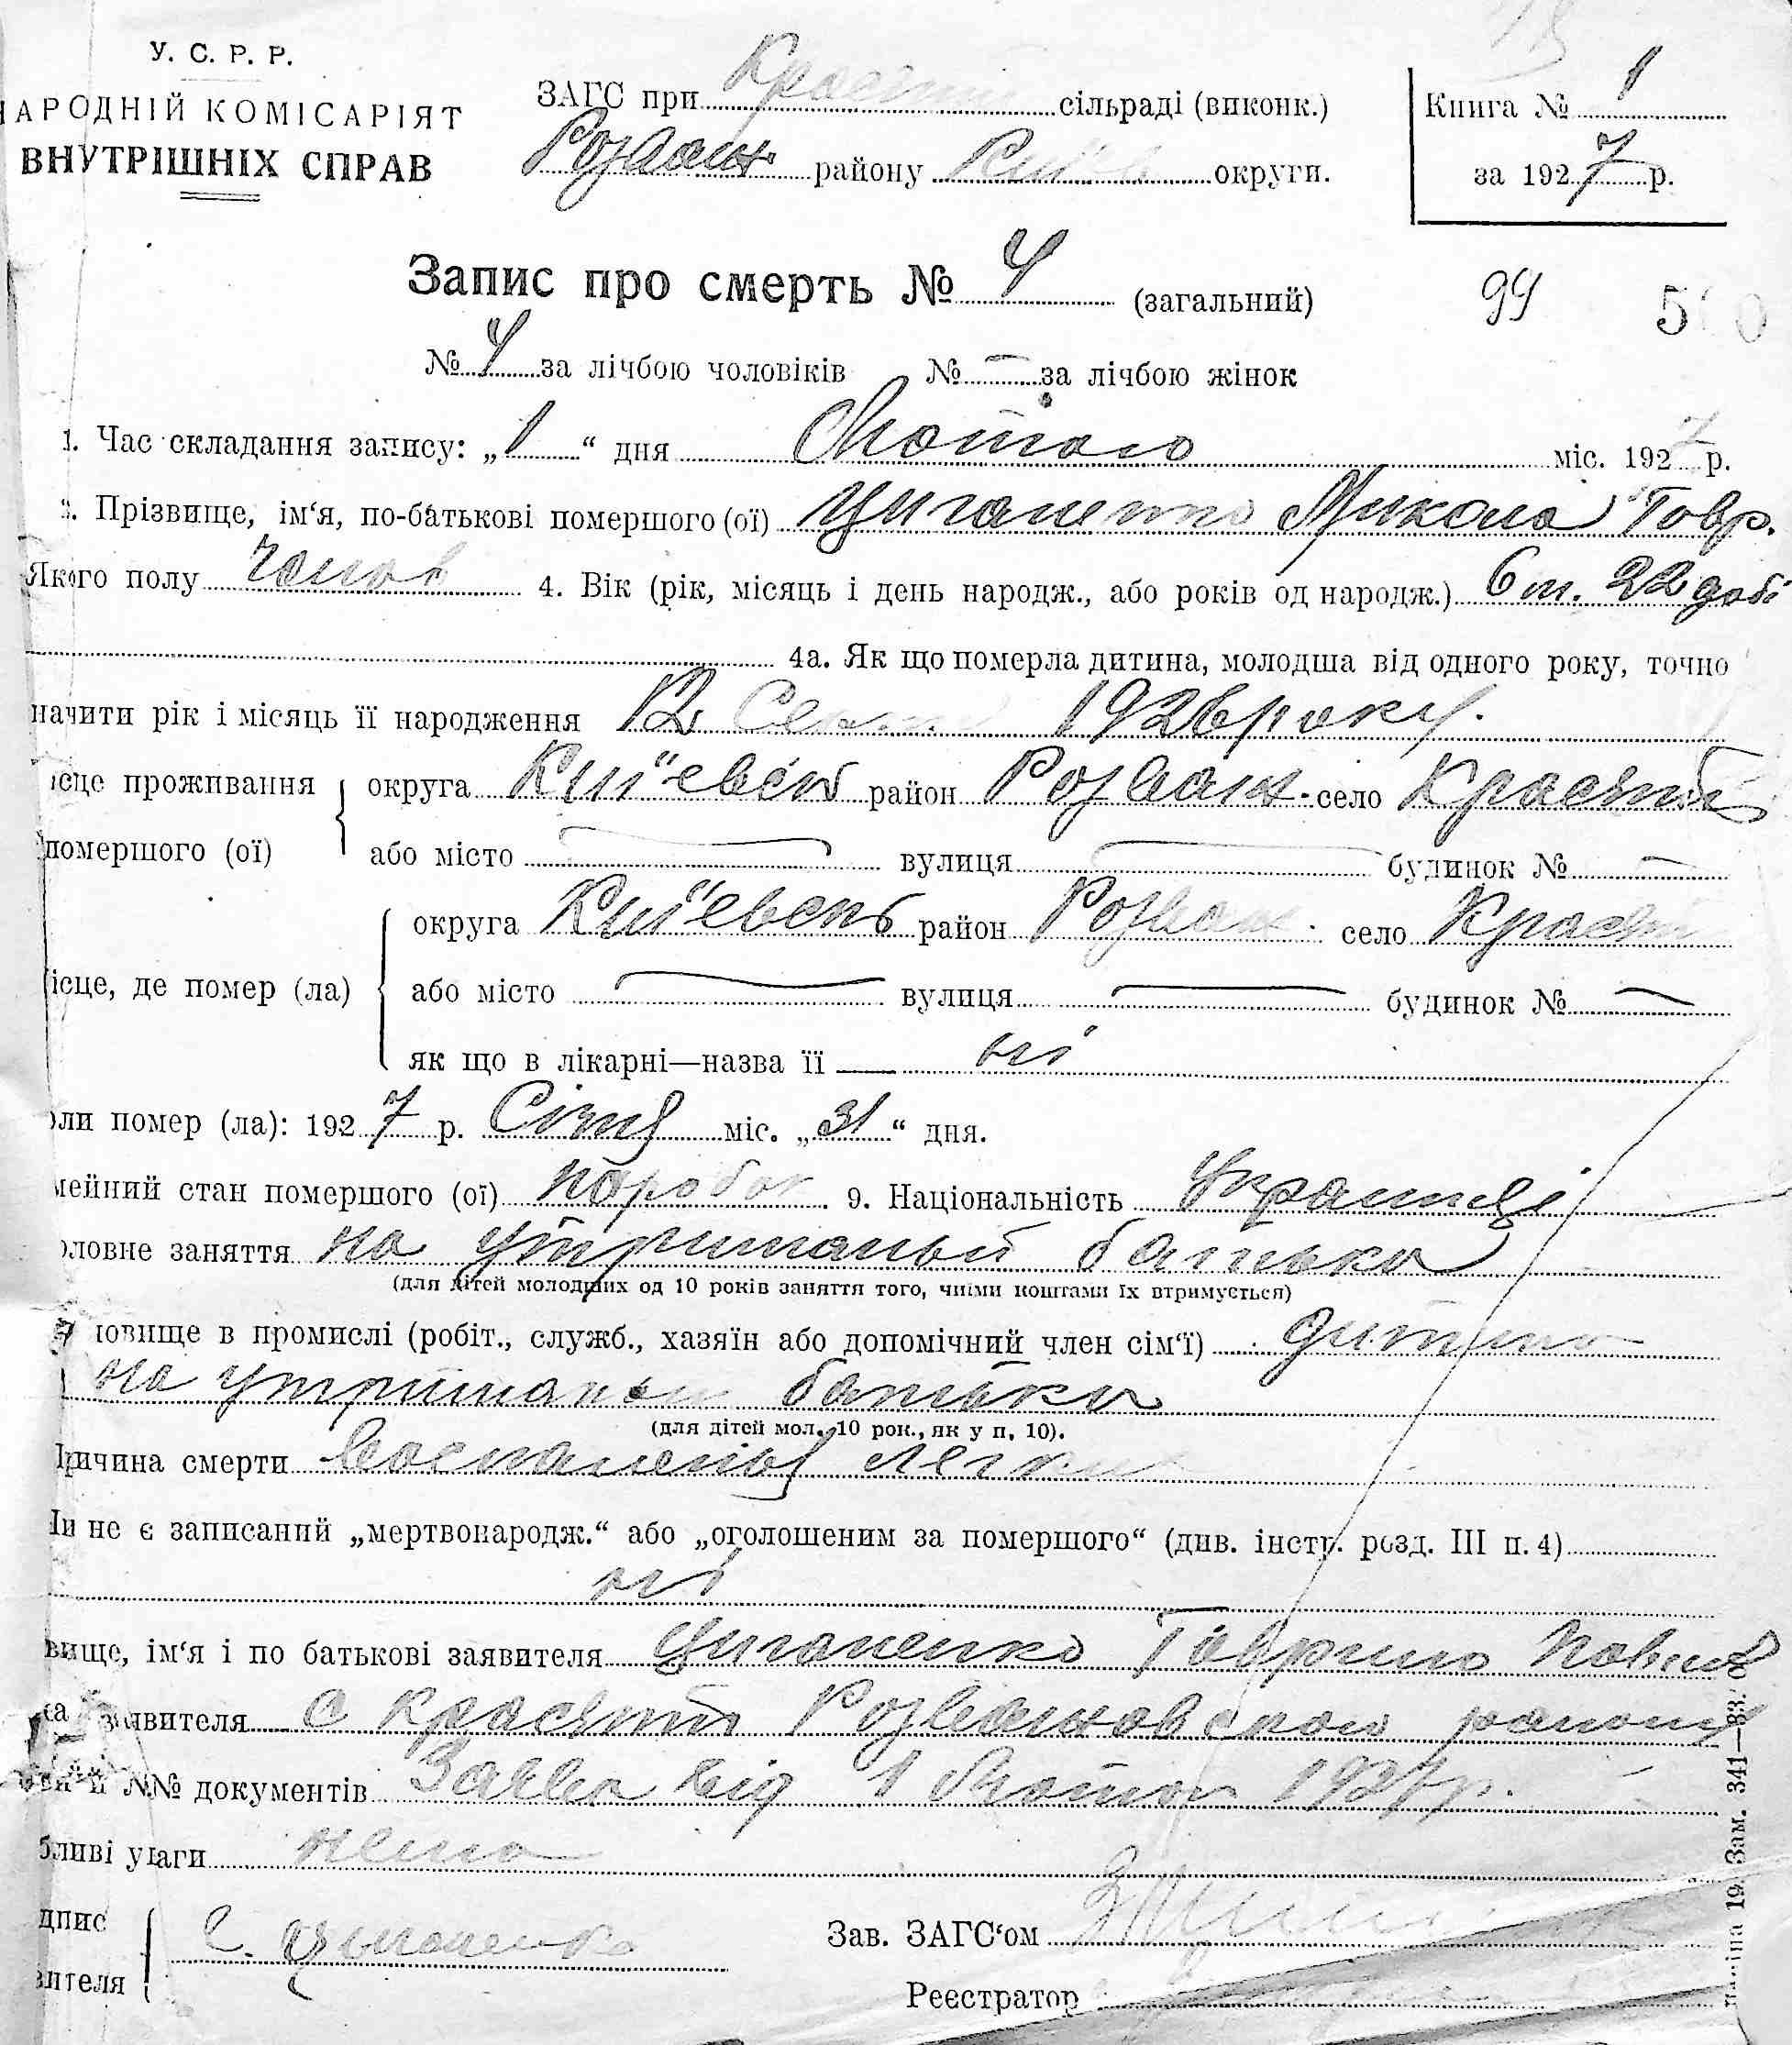 У. С. Р. Р.
НАРОДНІЙ КОМІСАРІЯТ
ВНУТРІШНІХ СПРАВ
ЗАГС при Красят сільраді (виконк.)
Розваж району Київ округи.
Книга № 1
за 1927 р.
Запис про смерть № 4 (загальний)
94 5 0
№ 4 за лічбою чоловіків № — за лічбою жінок
1. Час складання запису: „1“ дня Лютого міс. 1927 р.
2. Прізвище, ім‘я, по-батькові помершого (ої) Циганенко Микола Гавр.
Якого полу чолов 4. Вік (рік, місяць і день народж., або років од народж.) 6 м. 22 добі
4а. Як що померла дитина, молодша від одного року, точно
начити рік і місяць її народження 12 1926 року.
ісце проживання
помершого (ої)
округа Київевск район Розваж. село Красятичі
або місто — вулиця — будинок № —
ісце, де помер (ла)
округа Київевск район Розваж. село Красят
або місто — вулиця — будинок № —
як що в лікарні—назва її — ні
оли помер (ла): 1927 р. Січня міс. „31“ дня.
мейний стан помершого (ої) паробок 9. Національність Українці
оловне заняття на утриманьи батька
(для дітей молодших од 10 років заняття того, чиїми коштами їх втримується)
новище в промислі (робіт., служб., хазяїн або допомічний член сім‘ї) дитина
на утриманьи батька
(для дітей мол. 10 рок., як у п. 10).
Причина смерти Воспаленія легких
Чи не є записаний „мертвонародж.“ або „оголошеним за помершого“ (див. інстр. розд. III п. 4)
ні
вище, ім‘я і по батькові заявителя Циганенко Гаврило Павлов
са заявителя с Красятичі Розважовского району
№№ документів Заява від 1 Лютого 1927 р.
бливі уваги нема
дпис
вителя
Циганенко
Зав. ЗАГС‘ом
Реєстратор
19 Зам. 341—83